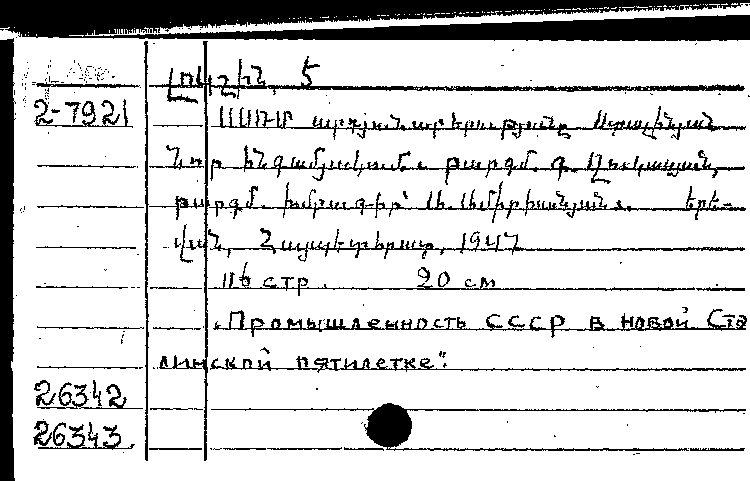 2-7921
ՍՍՌՄ արդյունաբերությունը Ստալինյան
նոր հնգամյակում. թարգմ. Գ. Ղուկասյան,
թարգմ. խմբագիր՝ Ս. Ամիրխանյան. Երե-
վան, Հայպետհրատ, 1947
116 стр. 20 см
„Промышленность СССР в новой Ста
линской пятилетке“.
26342
26343.